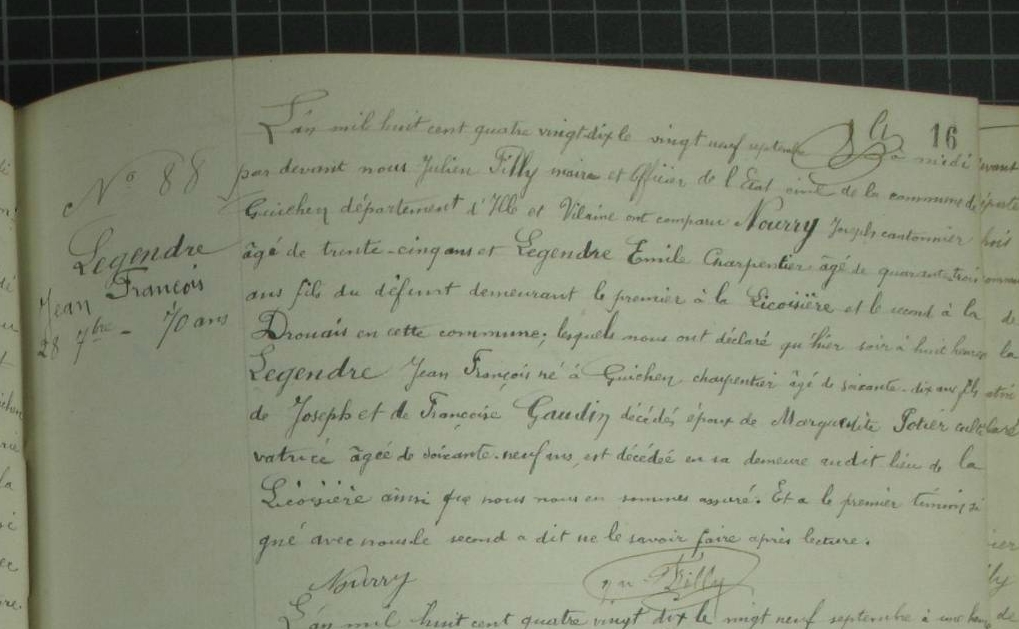 16
L'an mil huit cent quatre vingt dix le vingt neuf septembre à midi
par devant nous Julien Filly maire et Officier de l'Etat civil de la commune de
Guichen département d'Ille et Vilaine ont comparu Nourry Joseph cantonnier
âgé de trente-cinq ans et Legendre Emile Charpentier âgé de quarante-trois
ans fils du défunt demeurant le premier à la Licoisière et le second à la
Drouais en cette commune; lesquels nous ont déclaré qu'hier soir à huit heures
Legendre Jean François né à Guichen charpentier âgé de soixante-dix ans fils
de Joseph et de Françoise Gaudin décédés époux de Marguerite Potier culti
vatrice âgée de soixante-neuf ans, est décédée en sa demeure audit lieu de la
Licoisière ainsi que nous nous en sommes assuré. Et a le premier témoin si
gné avec nous le second a dit ne le savoir faire après lecture.
Nourry
Filly
L'an mil huit cent quatre vingt dix le vingt neuf septembre à
N° 88
Legendre
Jean François
28 7bre - 70 ans